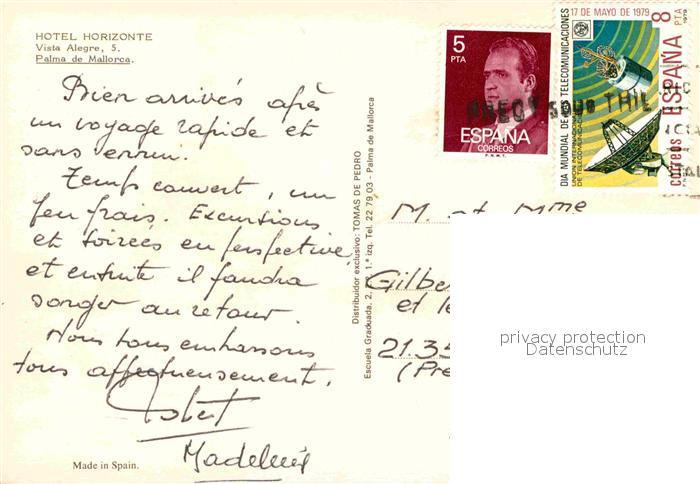 HOTEL HORIZONTE
Vista Alegre, 5.
Palma de Mallorca.
Bien arrivés après
un voyage rapide et
sans ennui.
Temps couvert, un
peu frais. Excursions
et soirées en perspective,
et ensuite il faudra
songer au retour.
Nous vous embrassons
tous affectueusement.
Madeleine
Made in Spain.
Distribuidor exclusivo: TOMAS DE PEDRO
Escuela Graduada, 2, 1.ª izq. Tel. 22 79 03 - Palma de Mallorca
5
PTA
ESPAÑA
CORREOS
F.N.M.T.
17 DE MAYO DE 1979
DIA MUNDIAL DE LAS TELECOMUNICACIONES
8
PTA
1979
correos ESPAÑA
M. et Mme
Gilbe
et le
21.35
(Pre
privacy protection
Datenschutz